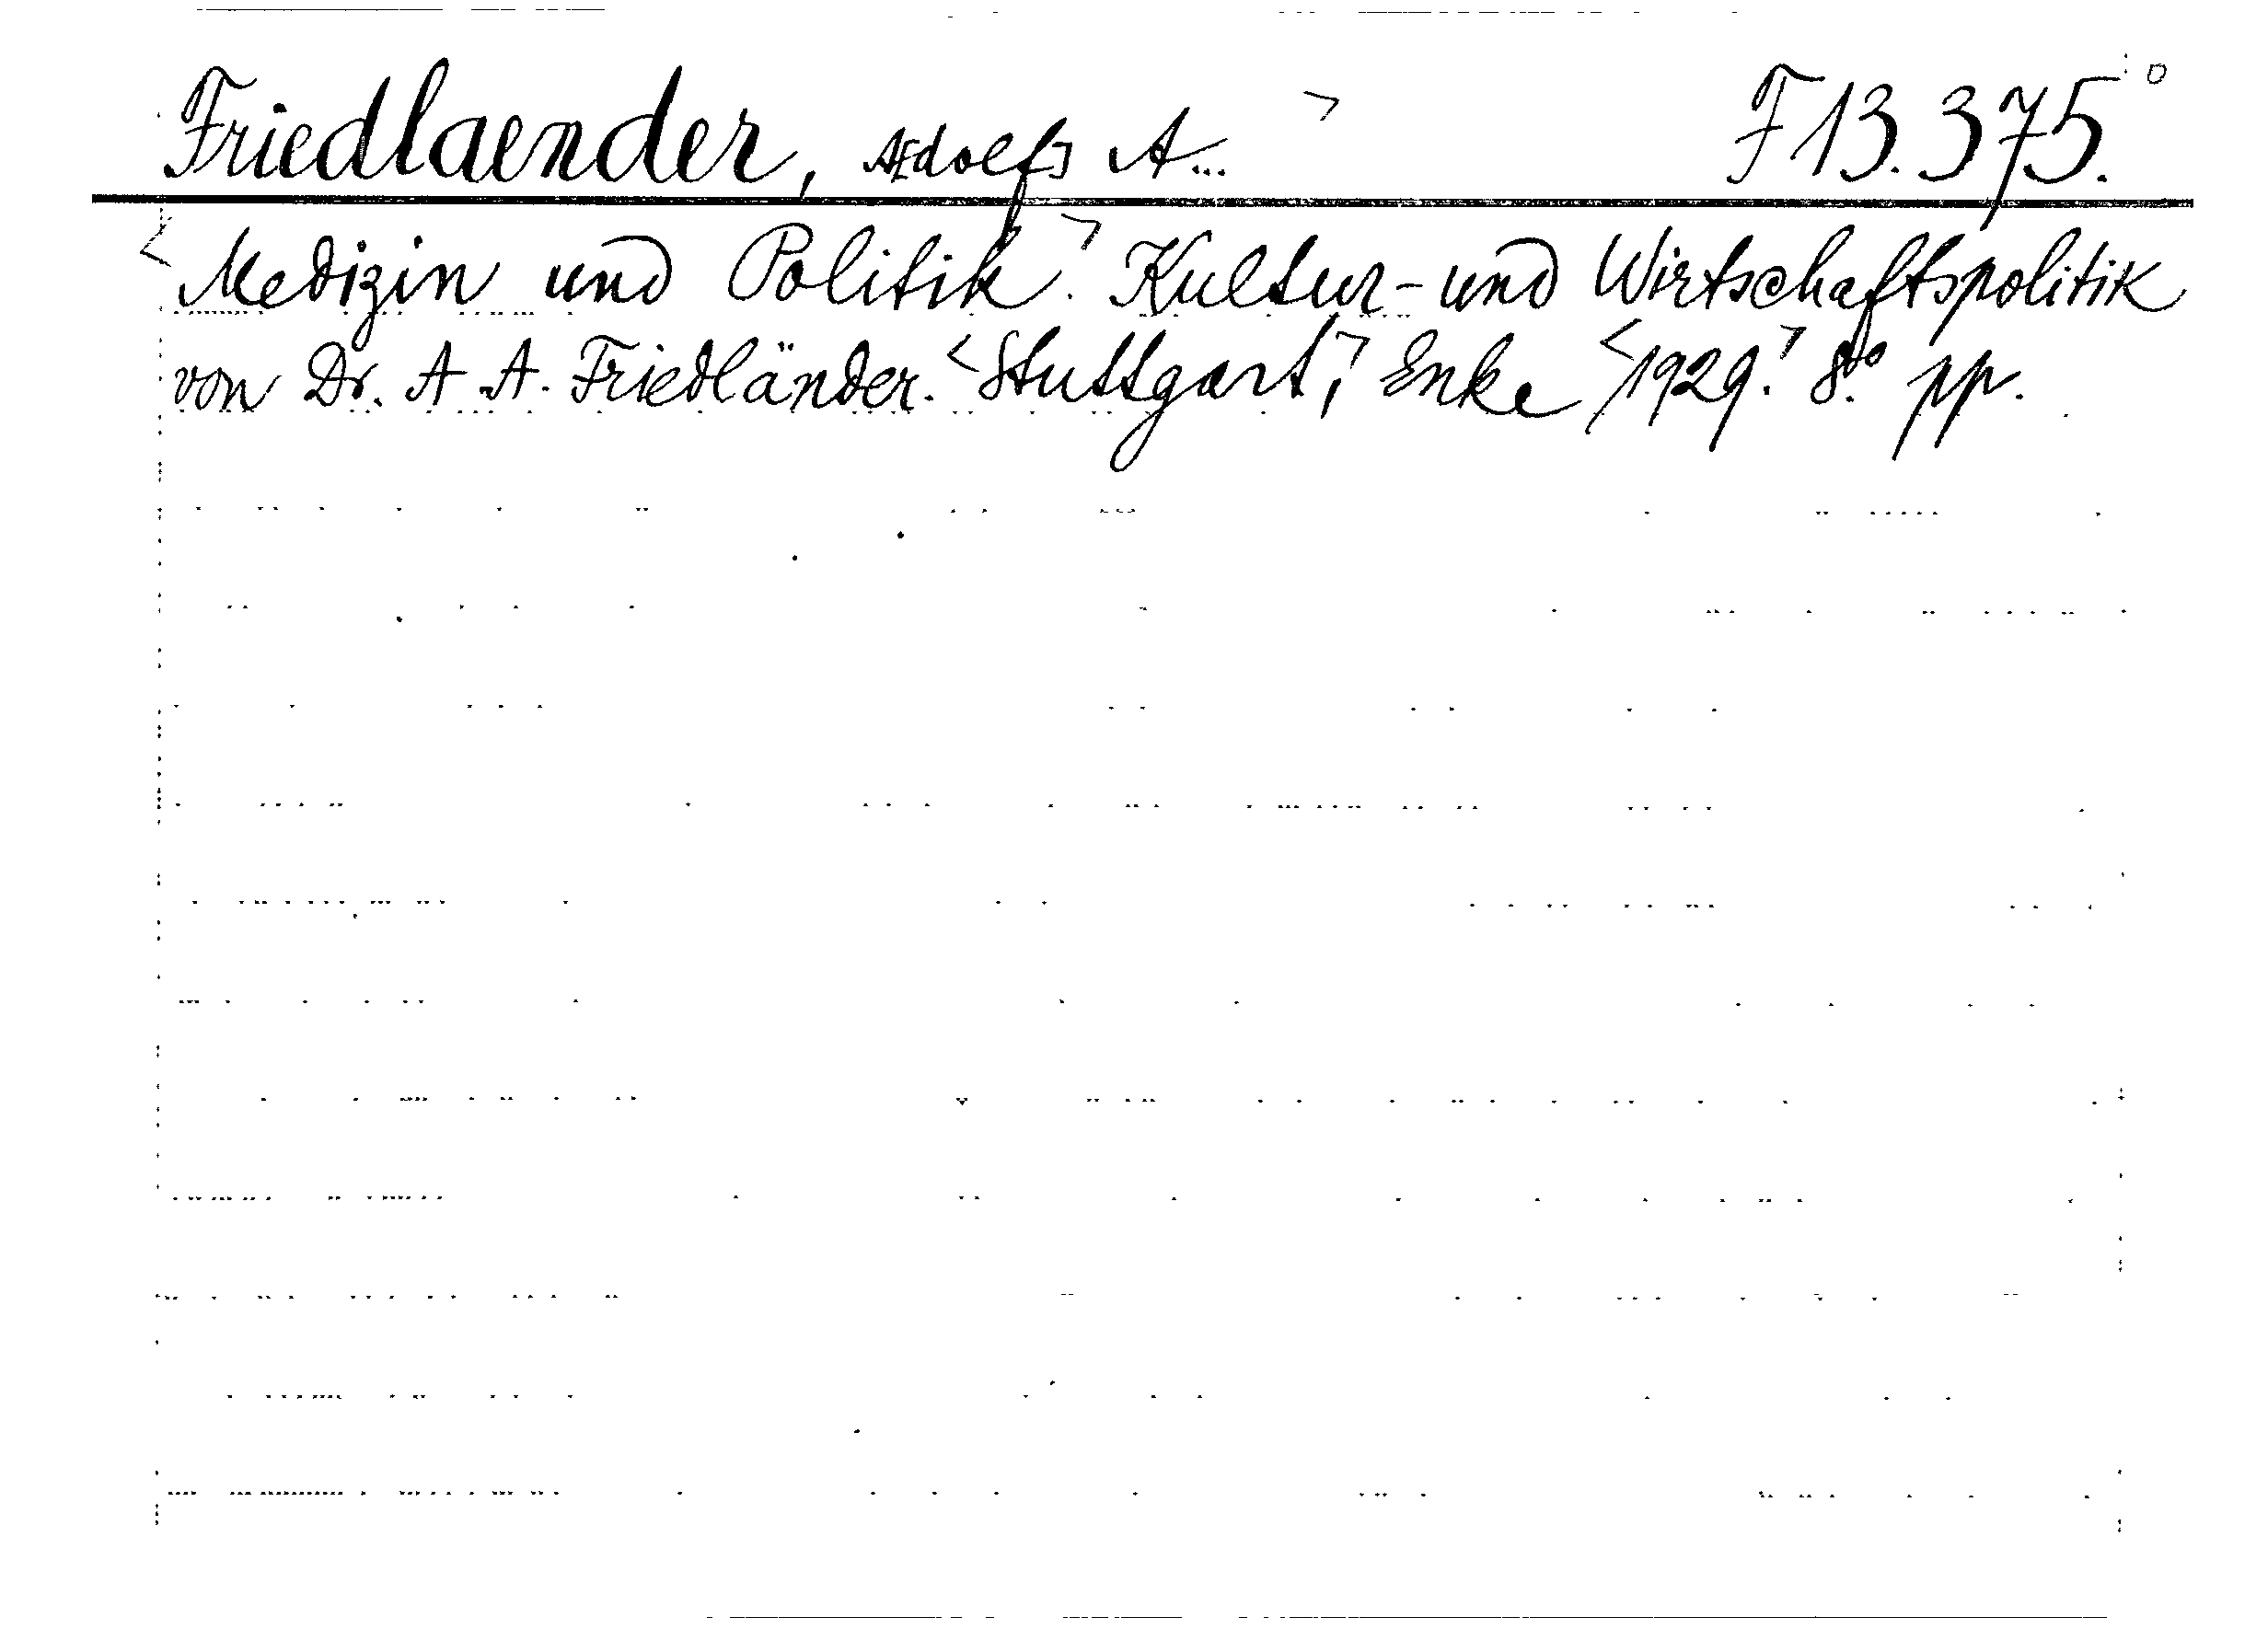 Friedlaender, A[dolf] A... > F 13.375.°
<Medizin und Politik.> Kultur- und Wirtschaftspolitik
von Dr. A. A. Friedländer. <Stuttgart,> Enke <1929.> 8.° pp.